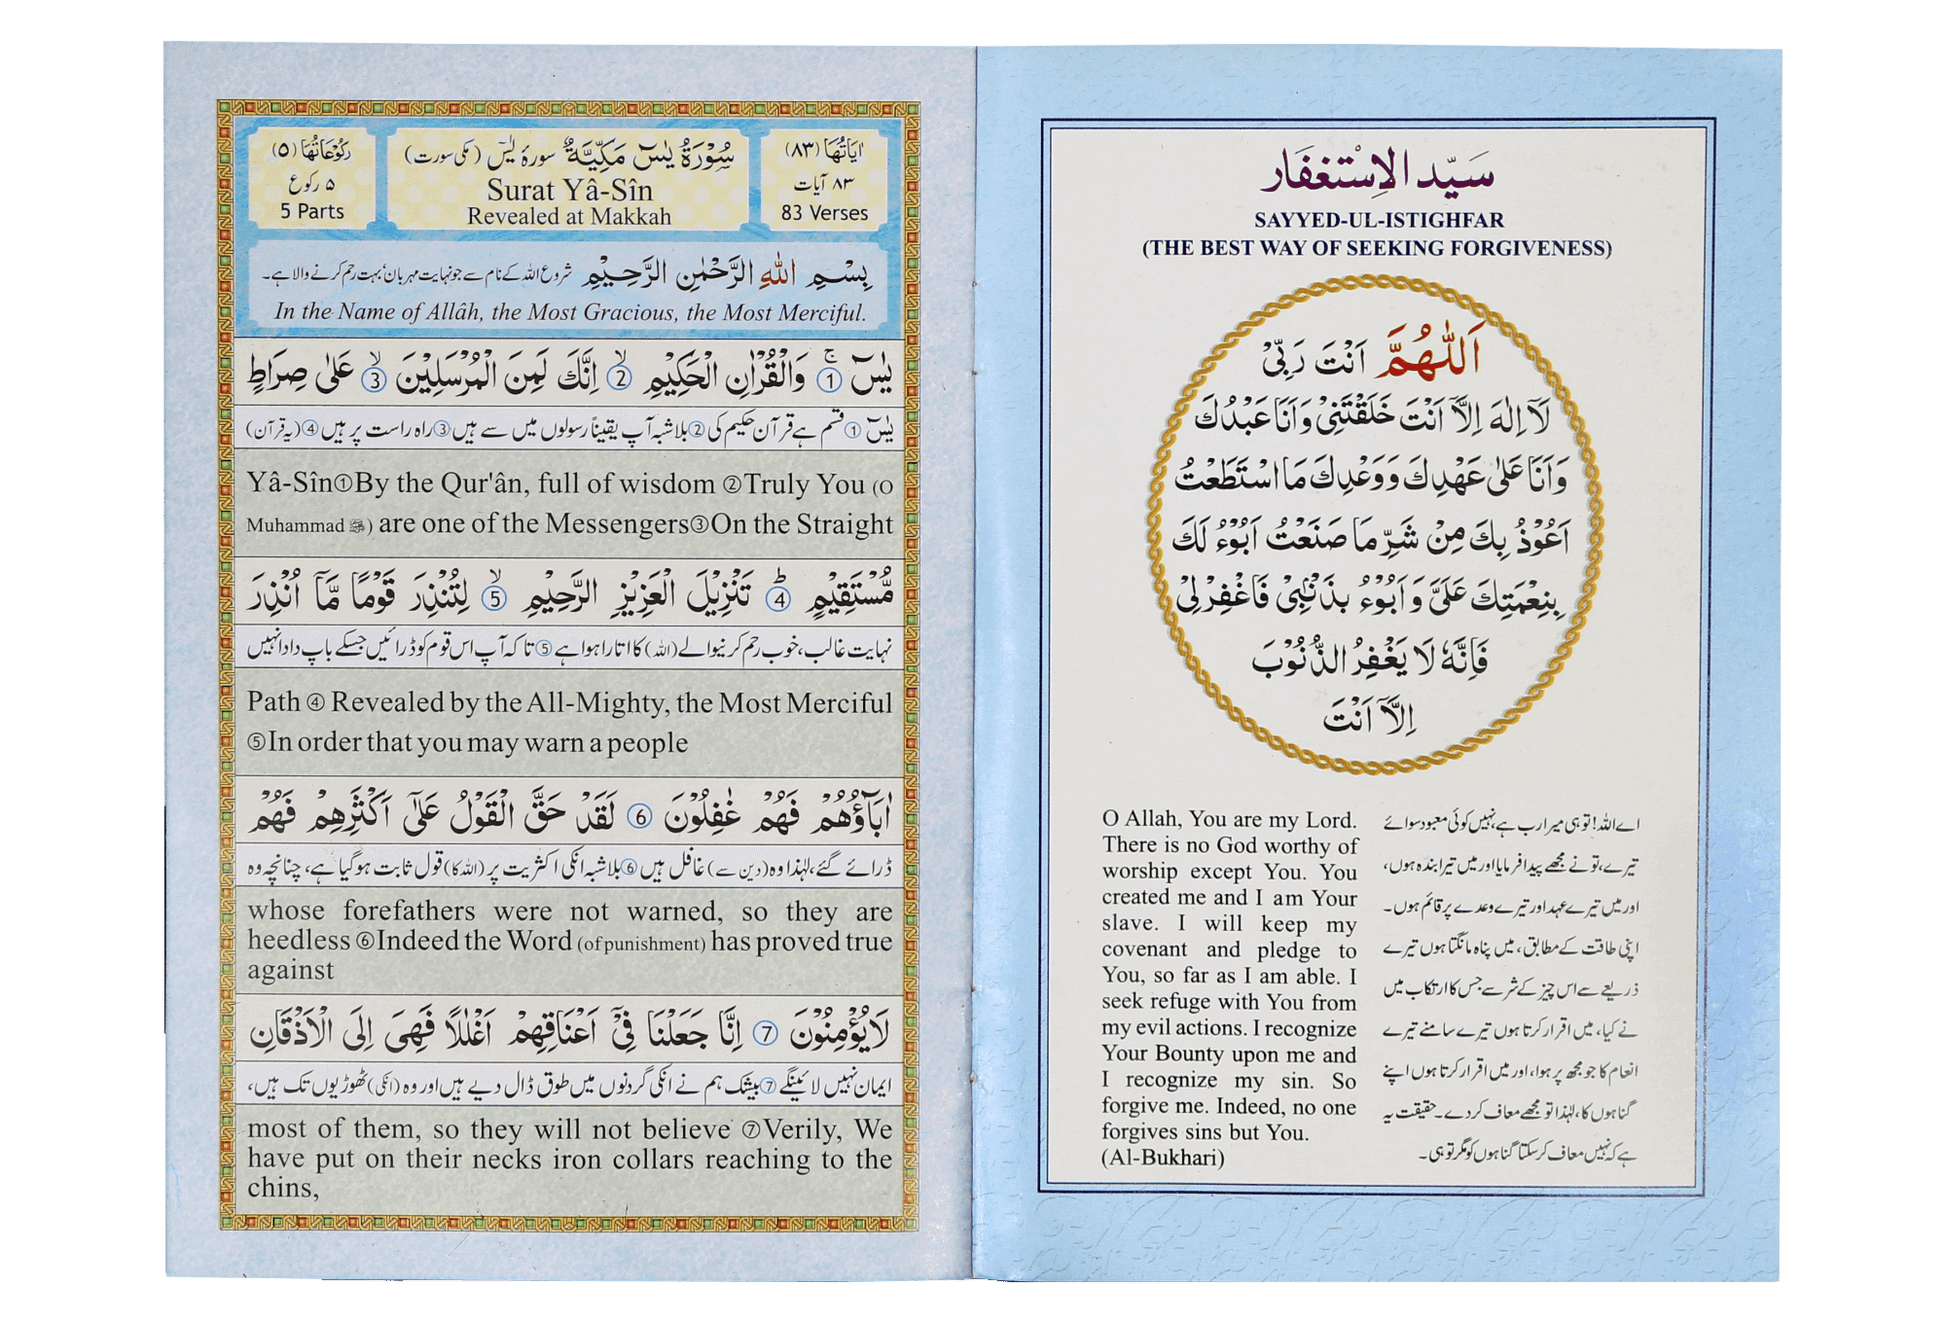 رکُوْعَاتُهَا (٥)
۵ رکوع
5 Parts
سُوْرَةُ يٰسٓ مَكِّيَّةٌ سورۂ یٰسٓ (مکی سورت)
Surat Yâ-Sîn
Revealed at Makkah
اٰيَاتُهَا (٨٣)
۸۳ آیات
83 Verses
بِسْمِ اللّٰهِ الرَّحْمٰنِ الرَّحِيْمِ شروع اللہ کے نام سے جو نہایت مہربان‘ بہت رحم کرنے والا ہے۔
In the Name of Allâh, the Most Gracious, the Most Merciful.
يٰسٓ ۚ ① وَالْقُرْاٰنِ الْحَكِيْمِ ۙ ② اِنَّكَ لَمِنَ الْمُرْسَلِيْنَ ۙ ③ عَلٰى صِرَاطٍ
یٰسٓ ① قسم ہے قرآن حکیم کی ② بلاشبہ آپ یقیناً رسولوں میں سے ہیں ③ راہ راست پر ہیں ④ (یہ قرآن)
Yâ-Sîn①By the Qur'ân, full of wisdom ②Truly You (O
Muhammad ﷺ) are one of the Messengers③On the Straight
مُّسْتَقِيْمٍ ؕ ④ تَنْزِيْلَ الْعَزِيْزِ الرَّحِيْمِ ۙ ⑤ لِتُنْذِرَ قَوْمًا مَّاۤ اُنْذِرَ
نہایت غالب، خوب رحم کرنیوالے (اللہ) کا اتارا ہوا ہے ⑤ تا کہ آپ اس قوم کو ڈرائیں جسکے باپ دادا نہیں
Path ④ Revealed by the All-Mighty, the Most Merciful
⑤In order that you may warn a people
اٰبَآؤُهُمْ فَهُمْ غٰفِلُوْنَ ⑥ لَقَدْ حَقَّ الْقَوْلُ عَلٰٓى اَكْثَرِهِمْ فَهُمْ
ڈرائے گئے، لہٰذا وہ (دین سے) غافل ہیں ⑥ بلاشبہ انکی اکثریت پر (اللہ کا) قول ثابت ہو گیا ہے، چنانچہ وہ
whose forefathers were not warned, so they are
heedless ⑥Indeed the Word (of punishment) has proved true
against
لَا يُؤْمِنُوْنَ ⑦ اِنَّا جَعَلْنَا فِيْۤ اَعْنَاقِهِمْ اَغْلٰلًا فَهِيَ اِلَى الْاَذْقَانِ
ایمان نہیں لائینگے ⑦ بیشک ہم نے انکی گردنوں میں طوق ڈال دیے ہیں اور وہ (انکی) ٹھوڑیوں تک ہیں،
most of them, so they will not believe ⑦Verily, We
have put on their necks iron collars reaching to the
chins,
سَيِّد الْاِسْتِغفَار
SAYYED-UL-ISTIGHFAR
(THE BEST WAY OF SEEKING FORGIVENESS)
اَللّٰهُمَّ اَنْتَ رَبِّيْ
لَآ اِلٰهَ اِلَّآ اَنْتَ خَلَقْتَنِيْ وَاَنَا عَبْدُكَ
وَاَنَا عَلٰى عَهْدِكَ وَوَعْدِكَ مَا اسْتَطَعْتُ
اَعُوْذُ بِكَ مِنْ شَرِّ مَا صَنَعْتُ اَبُوْءُ لَكَ
بِنِعْمَتِكَ عَلَيَّ وَاَبُوْءُ بِذَنْبِيْ فَاغْفِرْلِيْ
فَاِنَّهٗ لَا يَغْفِرُ الذُّنُوْبَ
اِلَّآ اَنْتَ
O Allah, You are my Lord.
There is no God worthy of
worship except You. You
created me and I am Your
slave. I will keep my
covenant and pledge to
You, so far as I am able. I
seek refuge with You from
my evil actions. I recognize
Your Bounty upon me and
I recognize my sin. So
forgive me. Indeed, no one
forgives sins but You.
(Al-Bukhari)
اے اللہ! تو ہی میرا رب ہے، نہیں کوئی معبود سوائے
تیرے، تو نے مجھے پیدا فرمایا اور میں تیرا بندہ ہوں،
اور میں تیرے عہد اور تیرے وعدے پر قائم ہوں۔
اپنی طاقت کے مطابق، میں پناہ مانگتا ہوں تیرے
ذریعے سے اس چیز کے شر سے جس کا ارتکاب میں
نے کیا، میں اقرار کرتا ہوں تیرے سامنے تیرے
انعام کا جو مجھ پر ہوا، اور میں اقرار کرتا ہوں اپنے
گناہوں کا، لہٰذا تو مجھے معاف کر دے۔ حقیقت یہ
ہے کہ نہیں معاف کر سکتا گناہوں کو مگر تو ہی۔